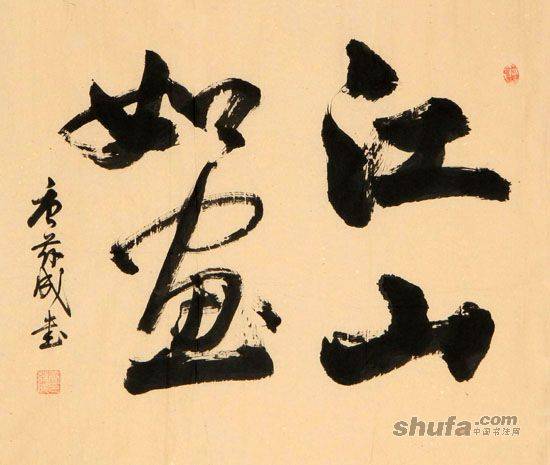 江山
如畫
成書
shufa.com
中国书法网